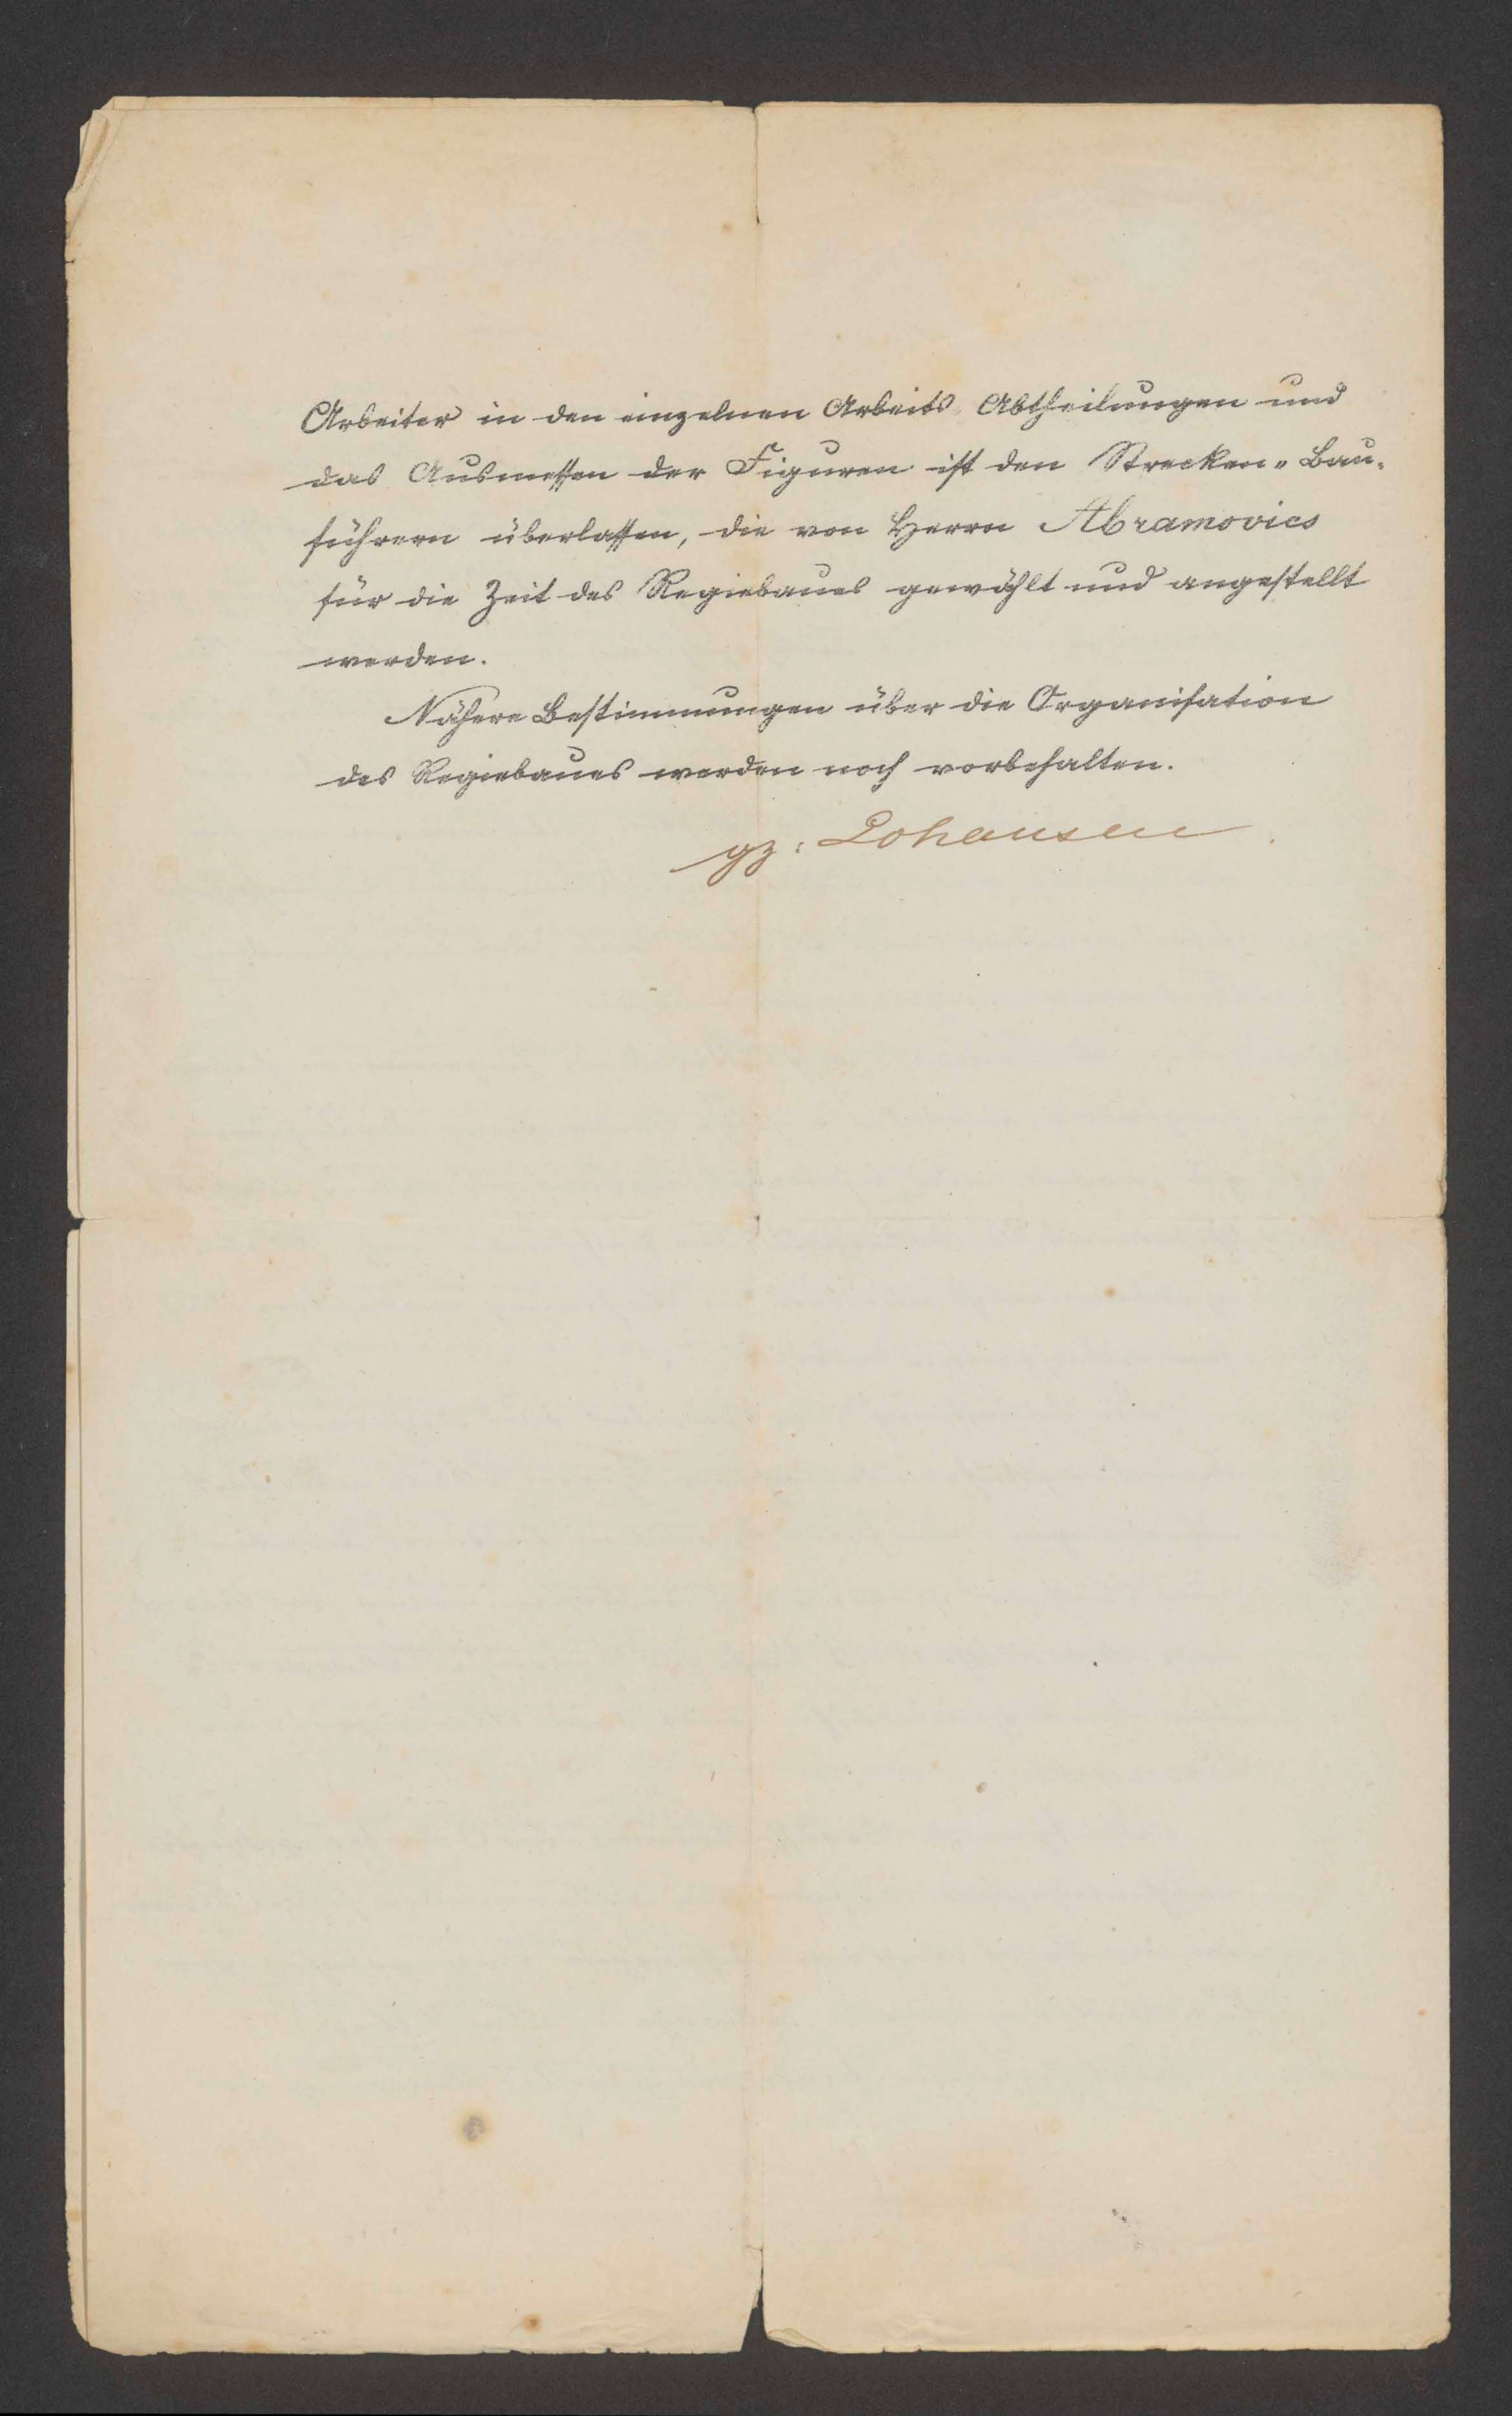 Arbeiter in den einzelnen Arbeits Abtheilungen und
das Ausmessen der Figuren ist den Strecken-Bau-
führern überlassen, die von Herrn Abramovics
für die Zeit des Regiebaues gewählt und angestellt
werden.
Nähere Bestimmungen über die Organisation
des Regiebaues werden noch vorbehalten.
gz: Lohausen